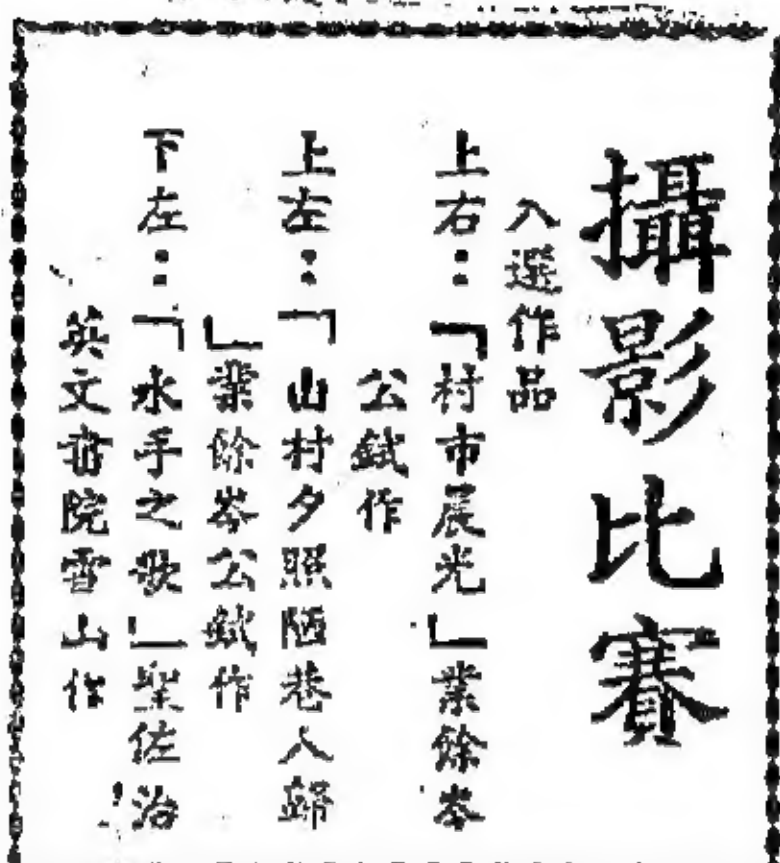 攝影比賽
入選作品
上右：「村市晨光」業餘岑
公鉞作
上左：「山村夕照陋巷人歸
」業餘岑公鉞作
下左：「水手之歌」聖佐治
英文書院雪山作